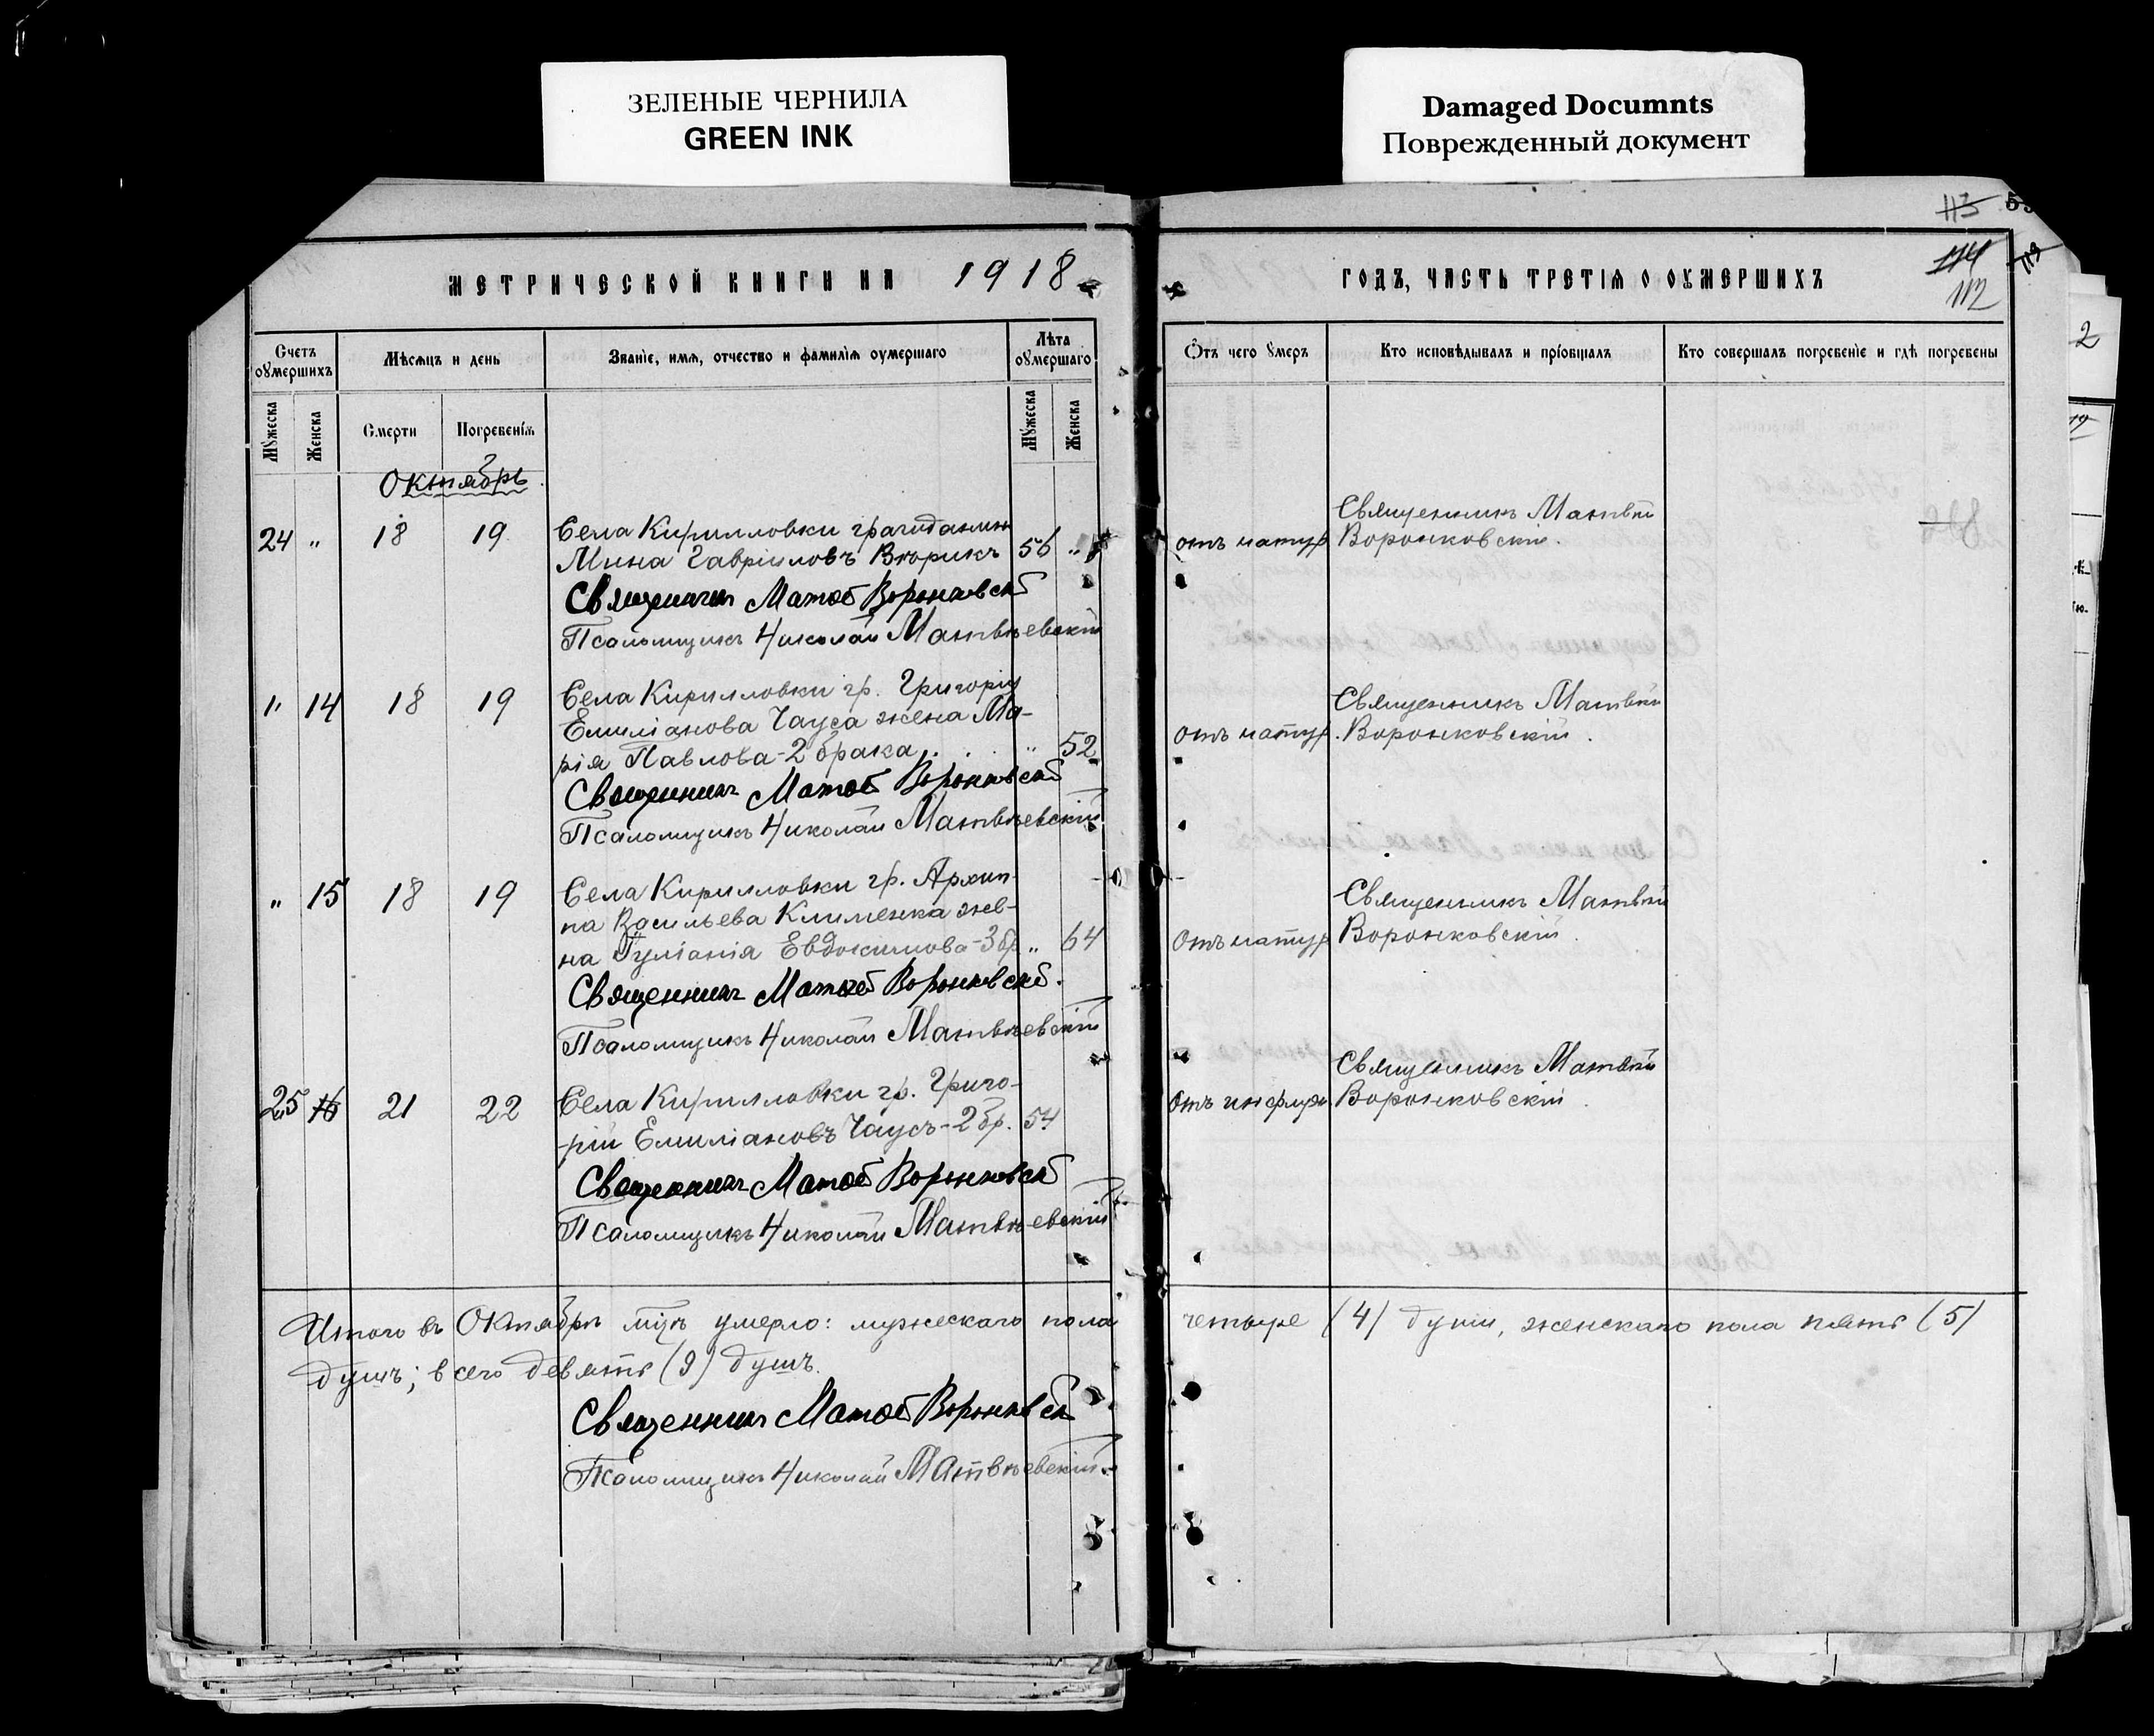 ЗЕЛЕНЫЕ ЧЕРНИЛА
GREEN INK
Damaged Documnts
Поврежденный документ
113
114
112
МЕТРИЧЕСКОЙ КНИГИ НА 1918
ГОДЪ, ЧАСТЬ ТРЕТІЯ О ОУМЕРШИХЪ
Счетъ оумершихъ
Мѣсяцъ и день
Званіе, имя, отчество и фамилія оумершаго
Лѣта оумершаго
Мужеска
Женска
Смерти
Погребенія
Мужеска
Женска
Отъ чего умеръ
Кто исповѣдывалъ и пріобщалъ
Кто совершалъ погребеніе и гдѣ погребены
Октябрь
24 " 18 19 Села Кирилловки гражданин
Мина Гавріиловъ Вторикъ 56 "
Священникъ Матвѣй Воронковскій
Псаломщикъ Николай Матвѣевскій
отъ натур
Священникъ Матвѣй
Воронковскій.
" 14 18 19 Села Кирилловки гр. Григорія
Емиліанова Чауса жена Ма-
рія Павлова - 2 брака " 52
Священникъ Матвѣй Воронковскій
Псаломщикъ Николай Матвѣевскій
отъ натур.
Священникъ Матвѣй
Воронковскій.
" 15 18 19 Села Кирилловки гр. Архип-
па Васильева Клименка же-
на Іуліанія Евдокимова - 3 бр " 64
Священникъ Матвѣй Воронковскій.
Псаломщикъ Николай Матвѣевскій
Отъ натур
Священникъ Матвѣй
Воронковскій.
25 16 21 22 Села Кирилловки гр. Григо-
рій Емиліановъ Чаусъ - 2 бр. 54
Священникъ Матвѣй Воронковскій
Псаломщикъ Николай Матвѣевскій
Отъ инфлуэн
Священникъ Матвѣй
Воронковскій.
Итого въ Октябрѣ мцѣ умерло: мужескаго пола четыре (4) души, женскаго пола пять (5)
душъ; всего девять (9) душъ.
Священникъ Матвѣй Воронковскій
Псаломщикъ Николай Матвѣевскій
2